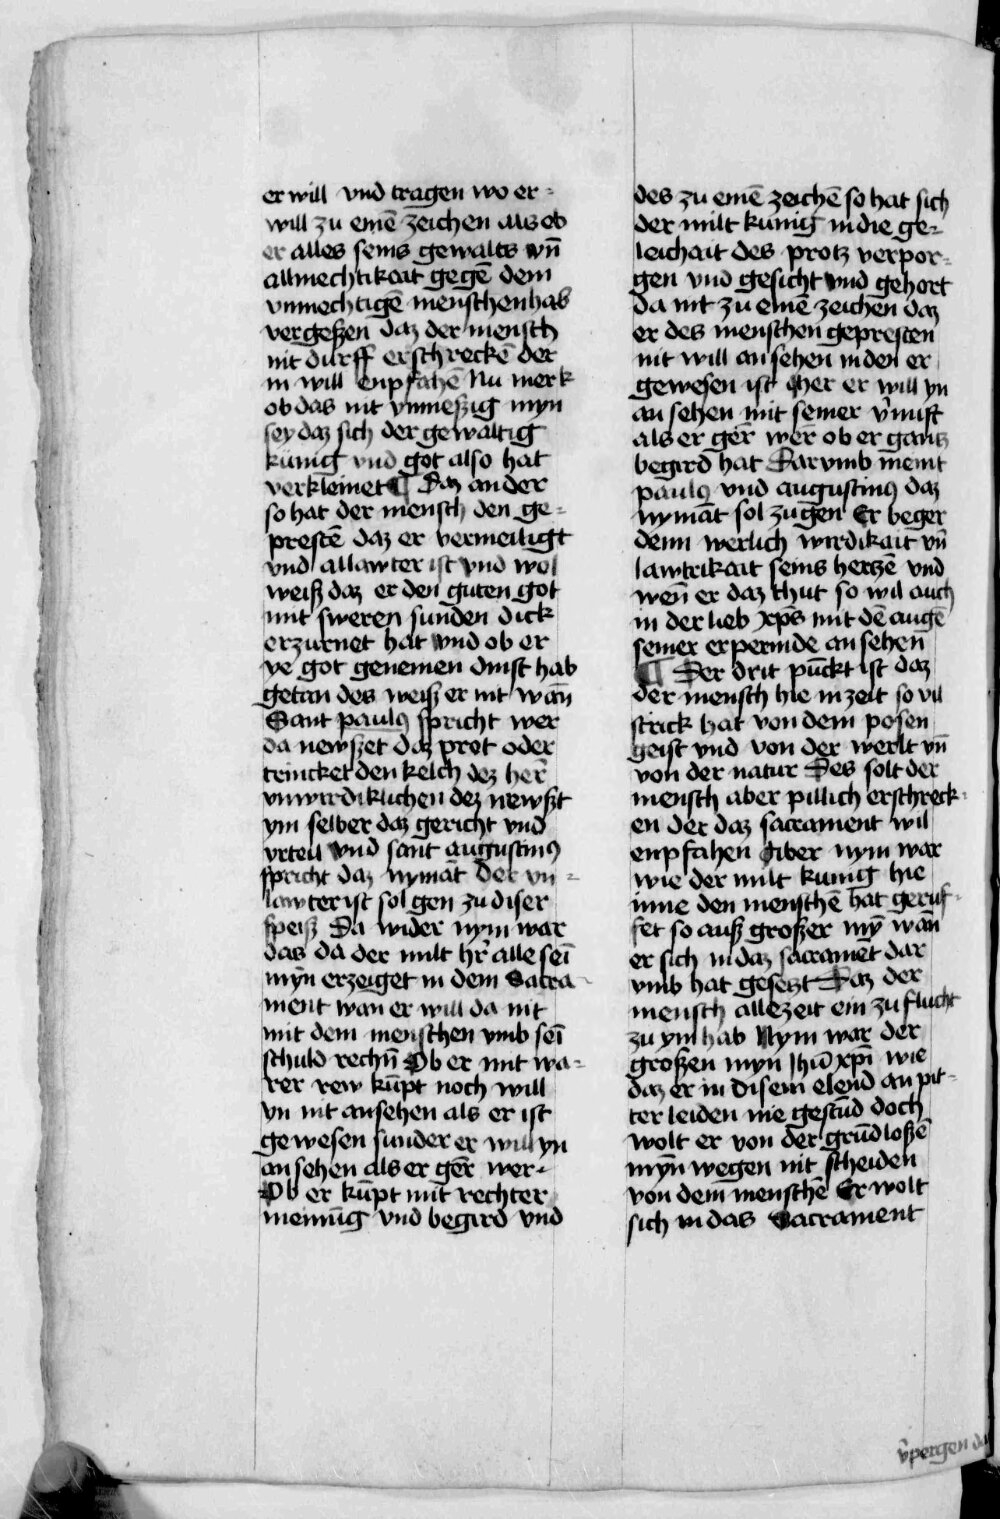 er will vnd tragen wo er=
will zu einē zeichen als ob
er alles seins gewalts vn̄
allmechtikait gegē dem
vnmechtigē menschen hab
vergeßen daz der mensch
nit durff erschreckē der
in will enpfahē Nu merk
ob das nit vnmeßig myn
sey daz sich der gewaltig
kunig vnd got also hat
verkleinet ¶ Daz ander
so hat der mensch den ge=
prestē daz er vermeiligt
vnd allawter ist vnd wol
weiß daz er den guten got
mit sweren sunden dick
erzurnet hat vnd ob er
ye got genemen dinst hab
getan des weiß er nit wān
Sant paulꝯ spricht wer
da newszet daz prot oder
trincket den kelch dez her̄
vnwirdiklichen dez newszt
ym selber daz gericht vnd
vrteil vnd sant augustinꝯ
spricht daz nymāt der vn=
lawter ist sol gen zu diser
speiß Da wider nym war
das da der milt hr̄ alle sei᷑
myn̄ erzeiget in dem Sacra
ment wan er will da nit
mit dem menschen vmb sei᷑
schuld rechn̄ Ob er mit wa=
rer rew kūpt noch will
yn nit ansehen als er ist
gewesen sunder er will yn
an sehen als er gēr wer
Ob er kūpt mit rechter
meinūg vnd begird vnd
des zu einē zeichē so hat sich
der milt kunig in die ge=
leichait des protz verpor=
gen vnd gesicht vnd gehort
da nit zu einē zeichen daz
er des menschen gepresten
nit will an sehen in den er
gewesen ist Mer er will yn
an sehen mit seiner v̄nuft
als er gēr wēr ob er gantz
begird hat Darvmb meint
paulꝯ vnd augustinꝯ daz
nymāt sol zu gen Er beger
denn werlich wirdikait vn̄
lawtrikait seins hertzē vnd
wen̄ er daz thut so wil auch
in der lieb xp̄s mit dē augē
seiner erpermde an sehen
¶ Der drit pūckt ist daz
der mensch hie in zeit so vil
strick hat von dem posen
geist vnd von der werlt vn̄
von der natur Des solt der
mensch aber pillich erschreck=
en der daz sacrament wil
enpfahen Aber nym war
wie der milt kunig hie
inne den menschē hat geruf=
fet so auß großer my᷑ wān
er sich in daz sacramēt dar
vmb hat gesetzt Daz der
mensch allezeit ein zuflucht
zu ym hab Nym war der
großen myn̄ Ihū xp̄i wie
daz er in disem elend an pit=
ter leiden nie gestūd doch
wolt er von der grūdloßē
myn̄ wegen nit scheiden
von dem menschē Er wolt
sich in das Sacrament
v̄pergen da